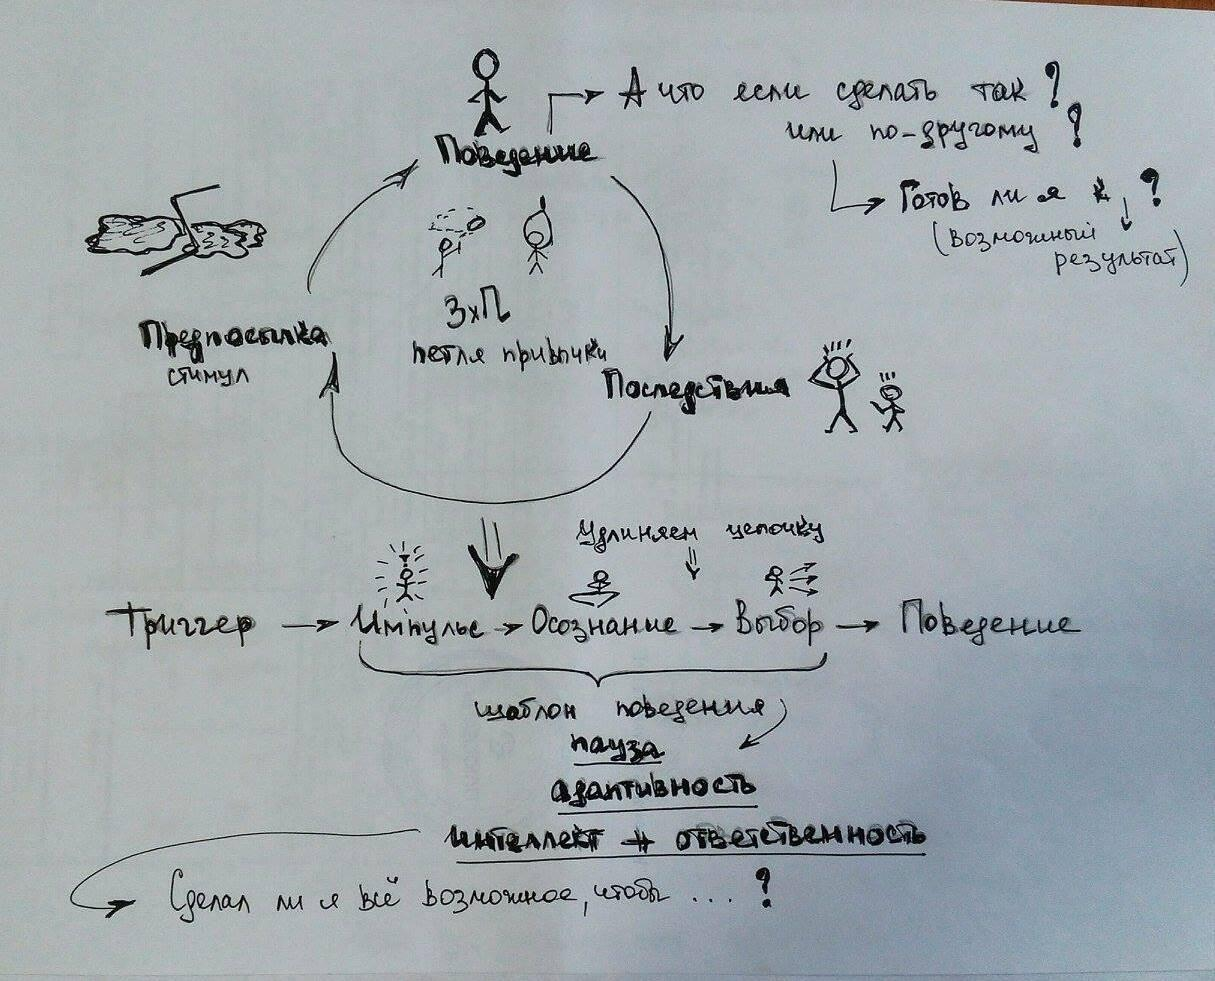 А что если сделать так?
или по-другому?
Поведение
Готов ли я к ?
(возможный
результат)
3хП
петля привычки
Предпосылка
стимул
Последствия
Удлиняем цепочку
Триггер → Импульс → Осознание → Выбор → Поведение
шаблон поведения
пауза
адаптивность
интеллект + ответственность
Сделал ли я всё возможное, чтобы ... ?